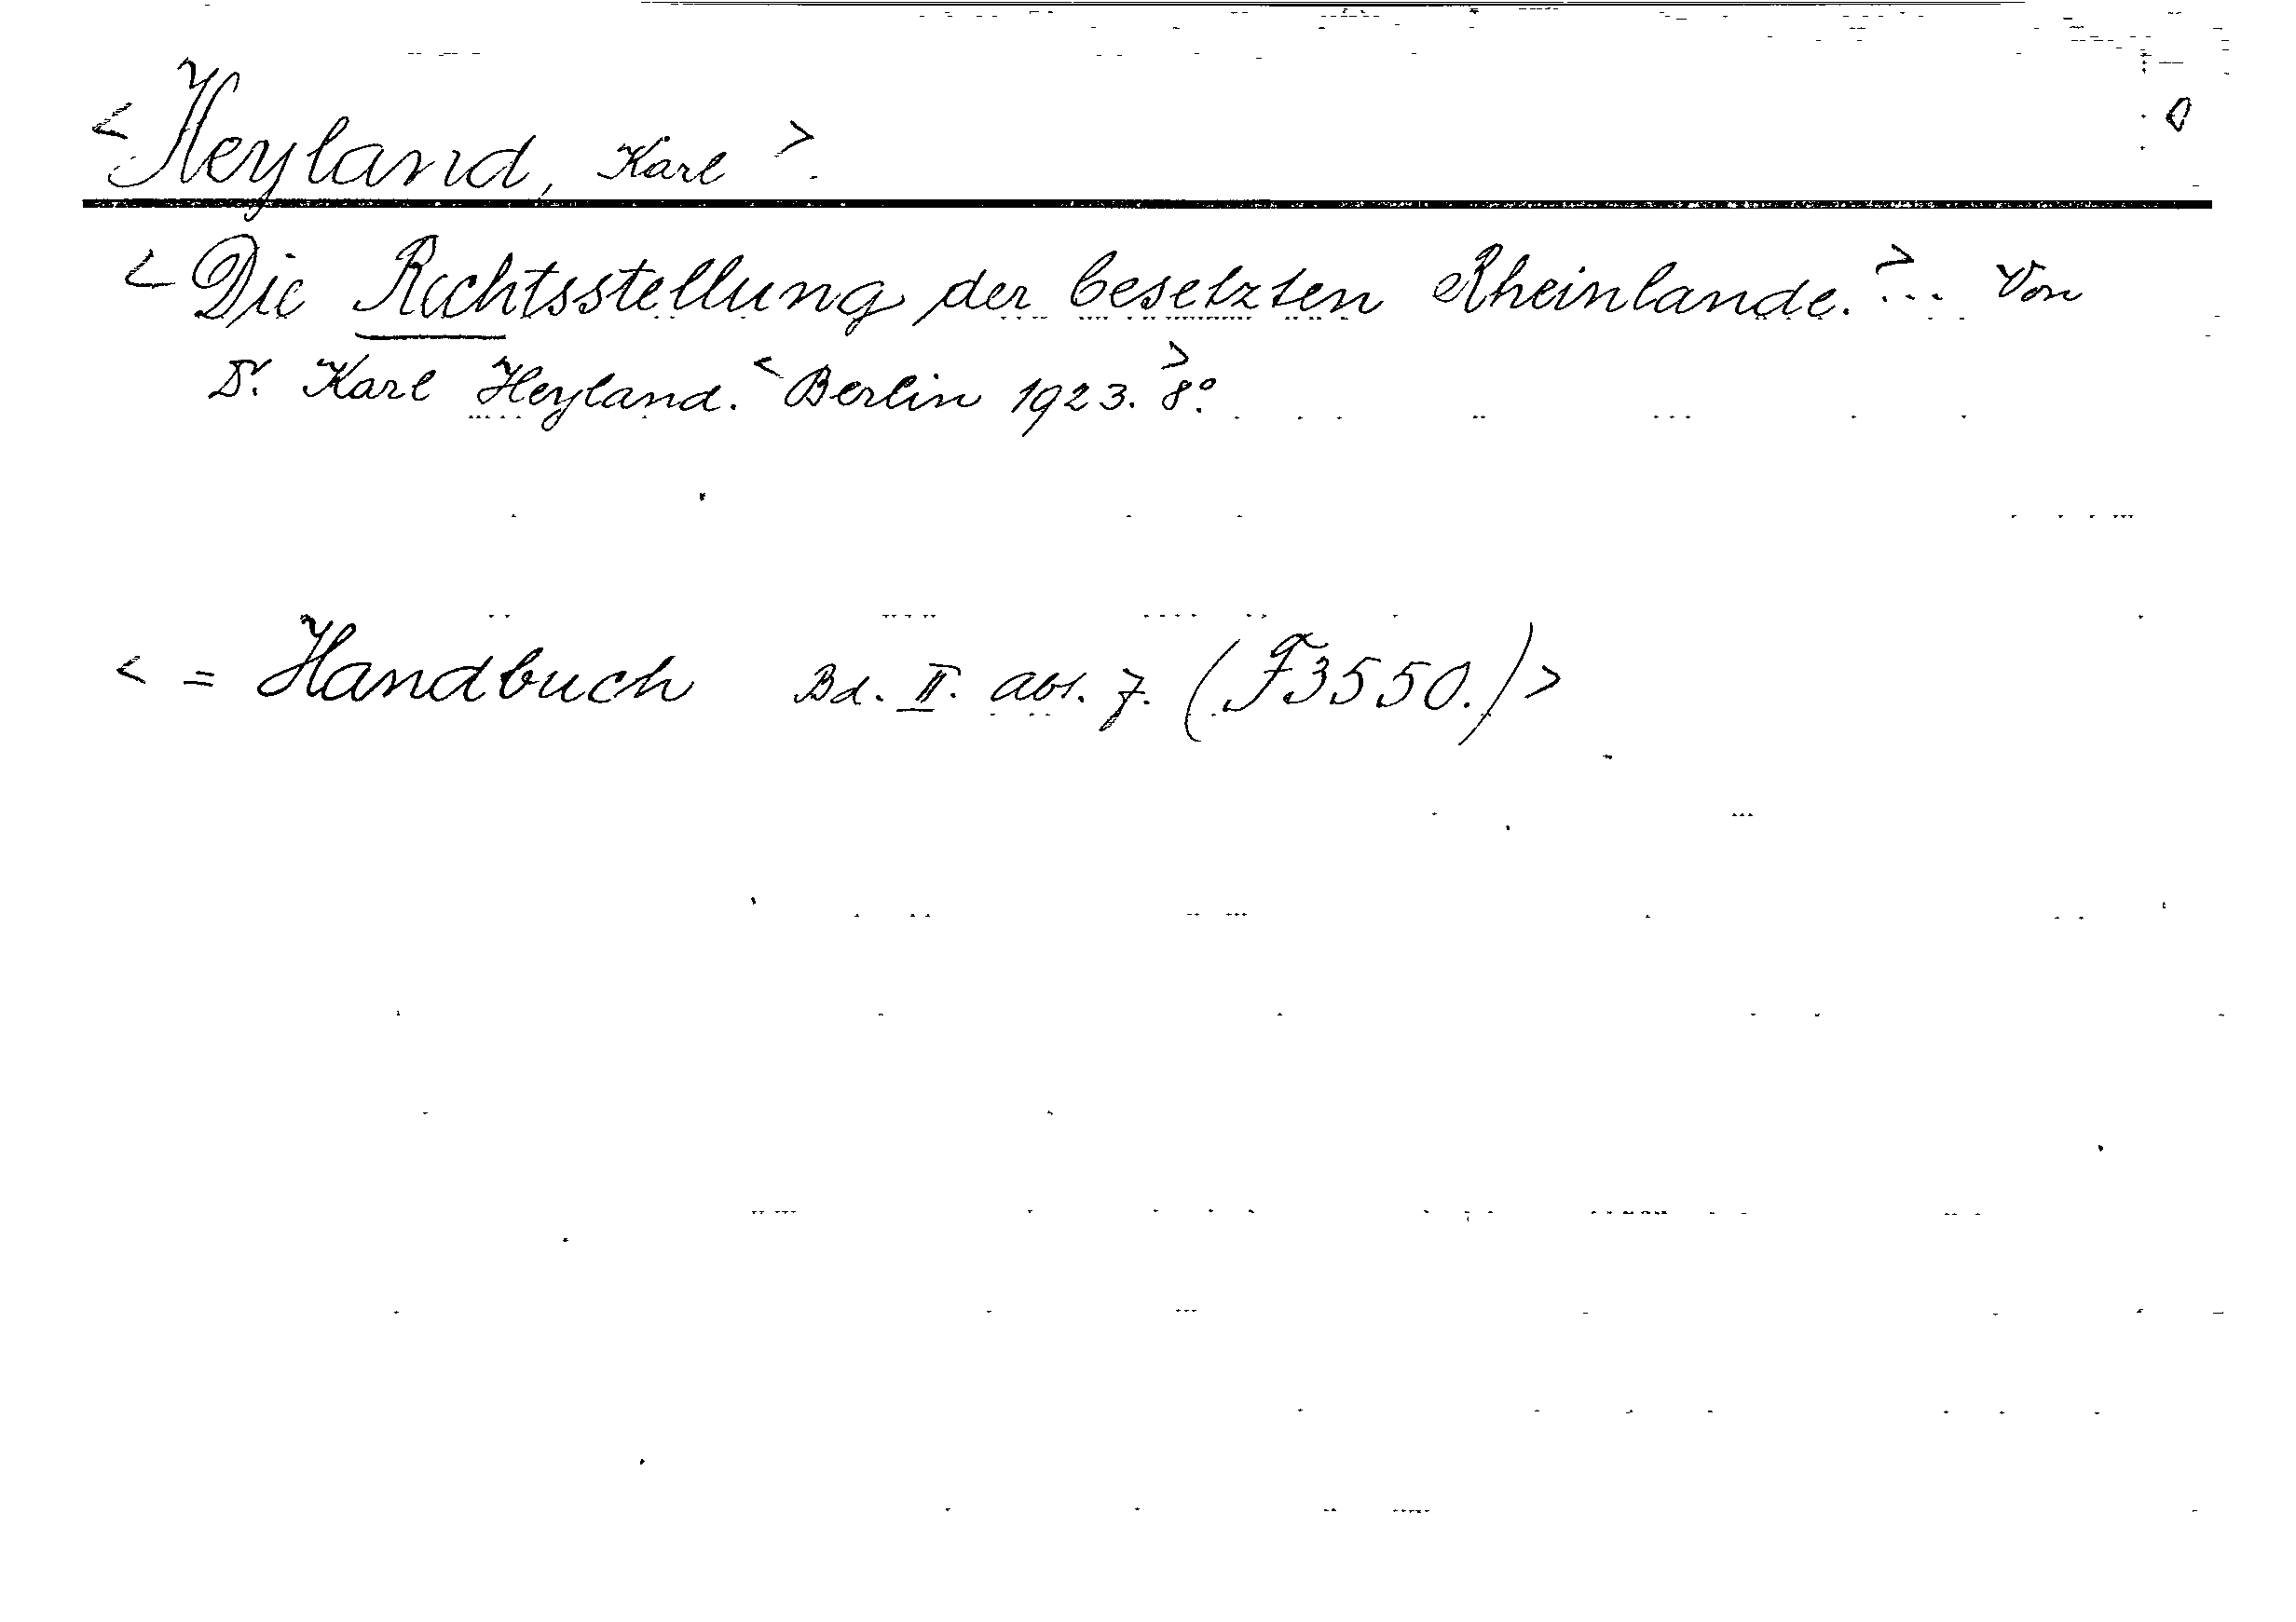 < Heyland, Karl >.
< Die Rechtsstellung der besetzten Rheinlande. > ... Von
Dr. Karl Heyland. < Berlin 1923. > 8°.
< = Handbuch Bd. II. Abt. 7. (F3550.) >